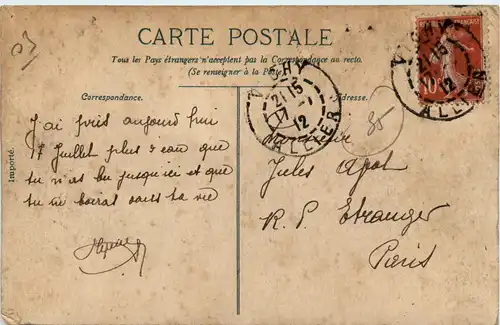 CARTE POSTALE
Tous les Pays étrangers n'acceptent pas la Correspondance au recto.
(Se renseigner à la Poste)
Correspondance.
Adresse.
Importé.
J'ai pris aujourd'hui
17 Juillet plus d'eau que
tu n'as bu jusqu'ici et que
tu ne boiras dans ta vie
Monsieur
Jules
R. P. Etranger
Paris
35
VICHY
21 15
17 - 7
12
ALLIER
VICHY
21 15
12
ALLIER
10